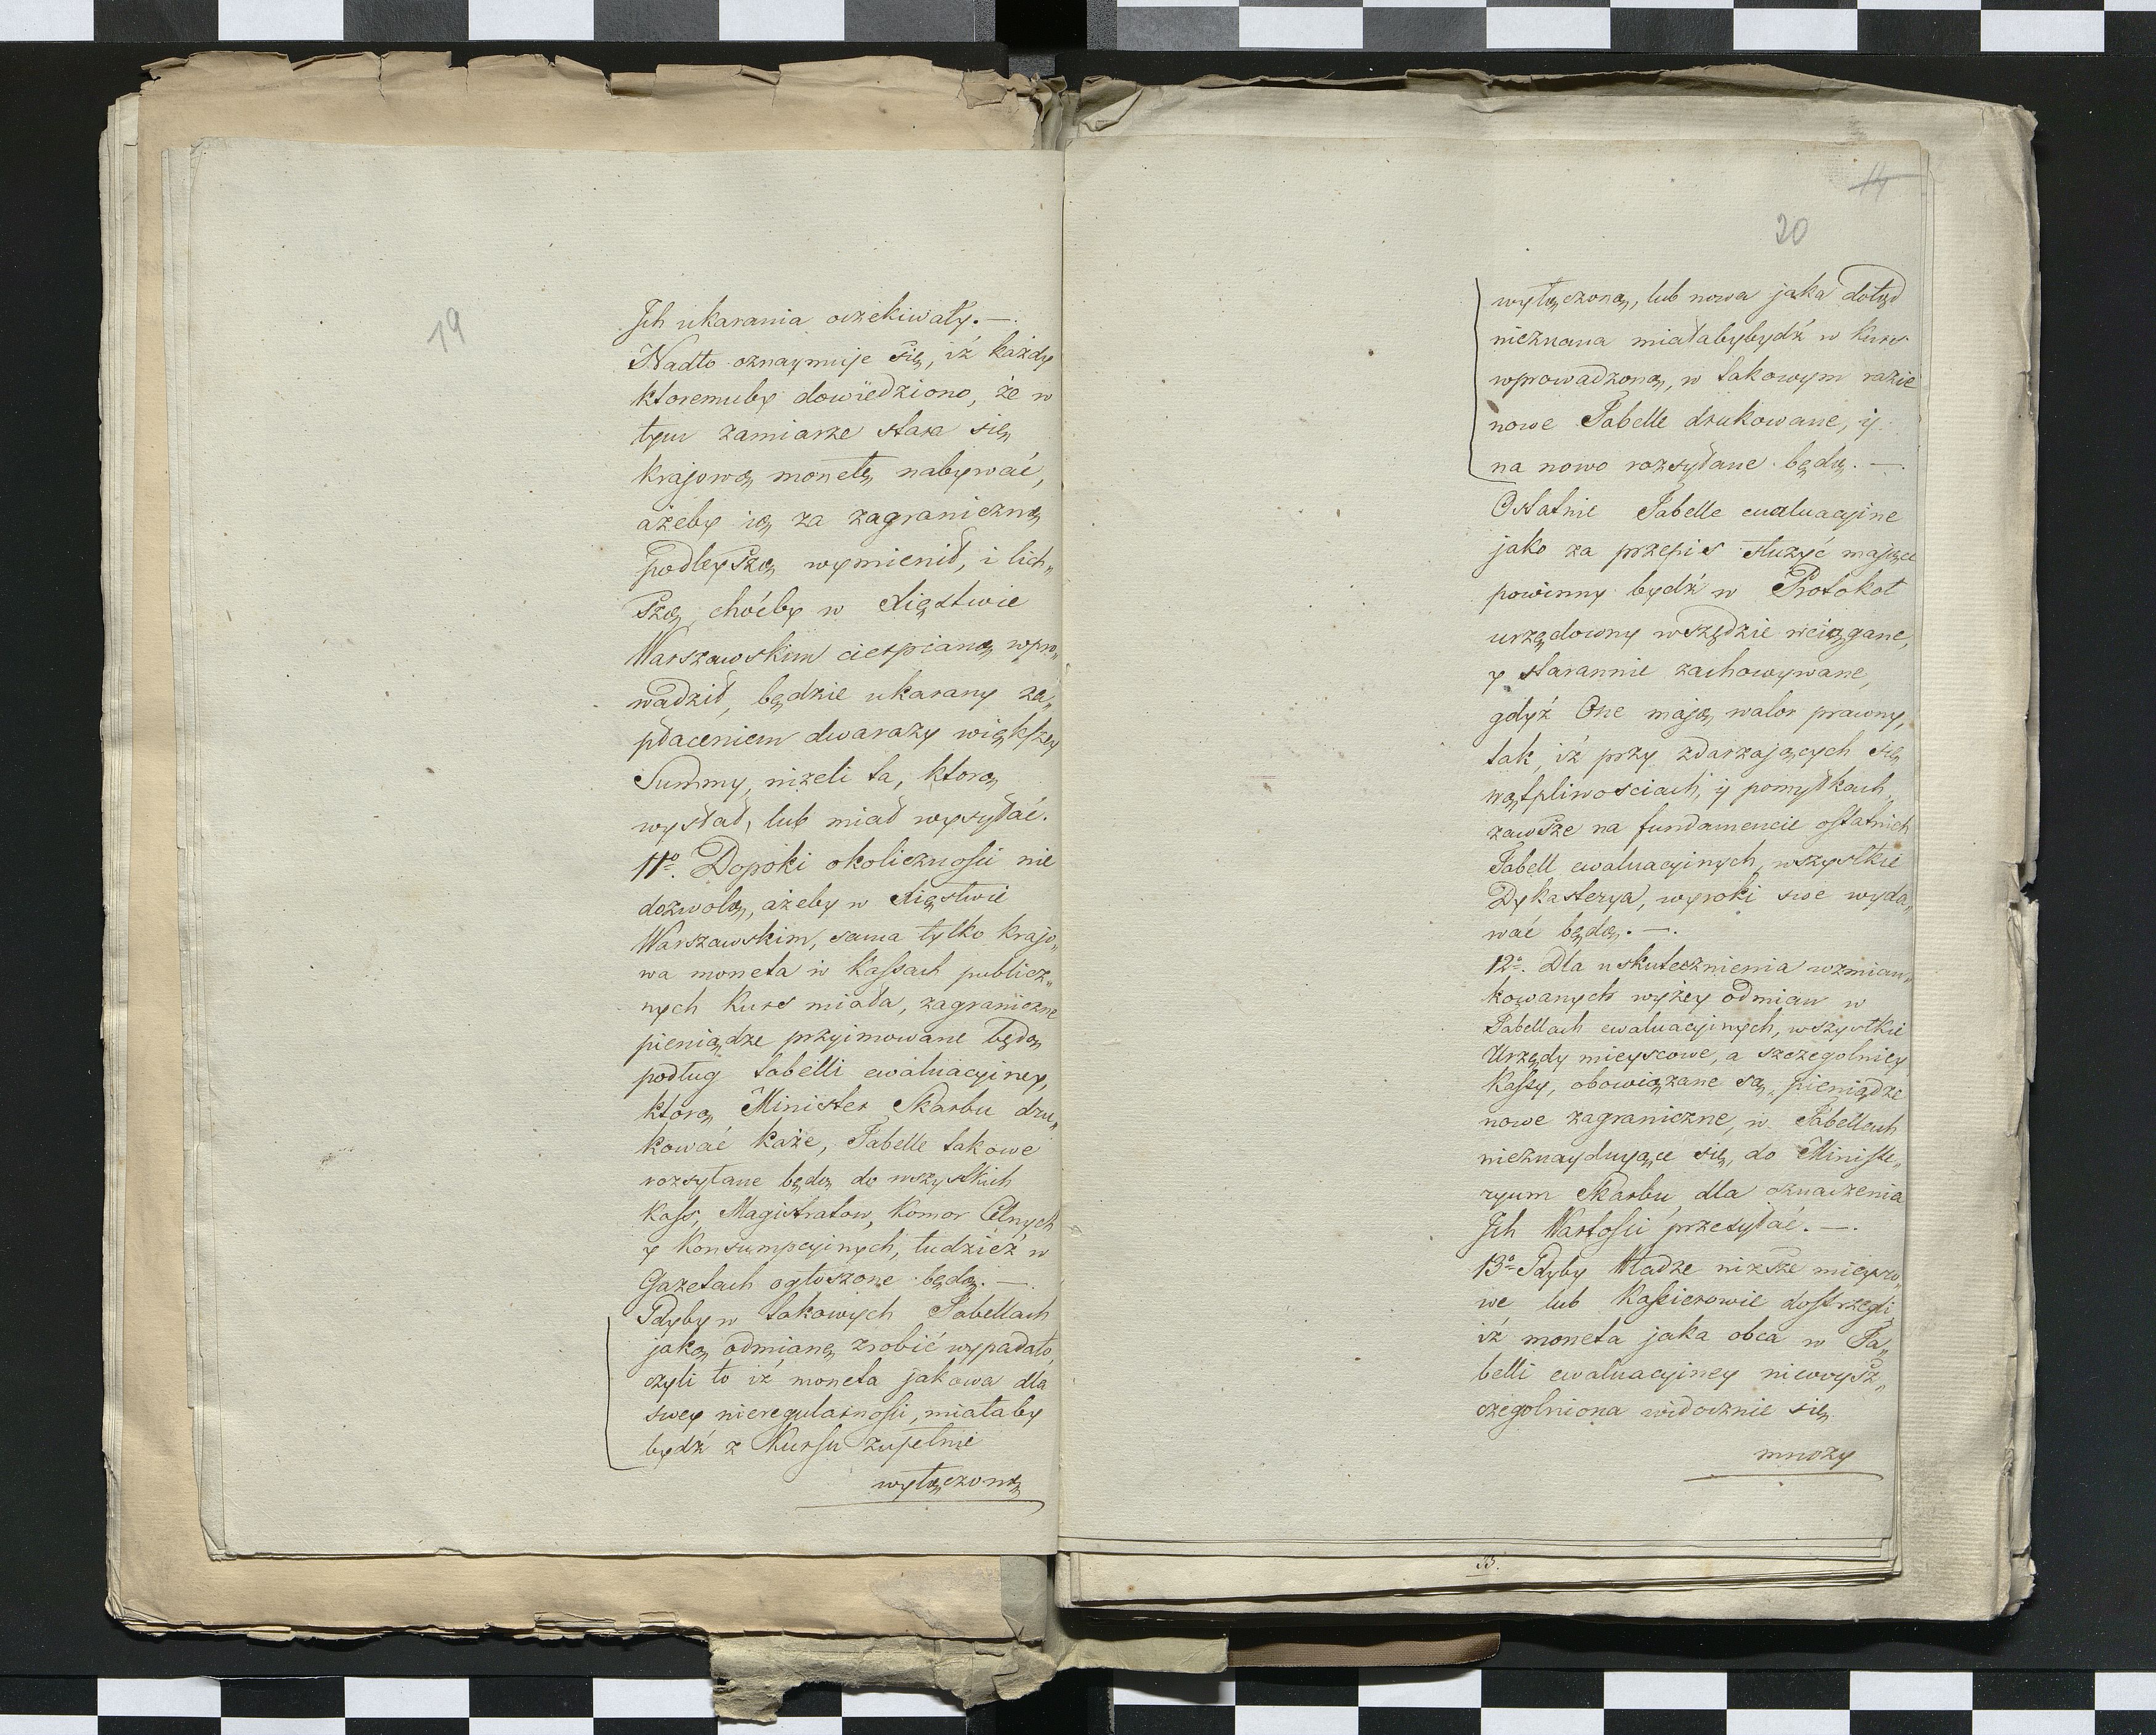 19
Jch ukarania oczekiwały. —.
Nadto oznaymuje się, iż każdy
ktoremuby dowiedziono, że w
tym zamiarze stara się
krajową monetę nabywać,
ażeby ią za zagraniczną
podleyszą wymienił, i lich„
szą, choćby w Xięstwie
Warszawskim cierpianą wpro„
wadził, będzie ukarany za„
płaceniem dwarazy większey
Summy, niżeli ta, ktorą
wysłał, lub miał wysyłać.
11º. Dopoki okoliczności nie
dozwolą, ażeby w Xięstwie
Warszawskim, sama tylko krajo„
wa moneta w Kassach publicz„
nych Kurs miała, zagraniczne
pieniądze przyimowane będą
podług tabelli ewaluacyiney,
ktorą Minister Skarbu dru„
kować każe, Tabelle takowe
rozsyłane będą do wszystkich
Kass, Magistratow, Komor Celnych
y Konsumpcyinych, tudzież w
Gazetach ogłoszone będą. —.
Gdyby w takowych Tabellach
jaką odmianę zrobić wypadało,
czyli to iż moneta jakowa dla
swey nieregularności, miałaby
bydź z Kursu zupełnie
wyłączoną
14
20
wyłączoną, lub nowa jaka dotąd
nieznana miałabybydź w Kurs
wprowadzoną, w takowym razie
nowe Tabelle drukowane, ij
na nowo rozsyłane będą. —.
Ostatnie Tabelle ewaluacyine
jako za przepis służyć mające
powinny bydź w Protokoł
urzędowny wszędzie wciągane,
y starannie zachowywane,
gdyż One mają walor prawny,
tak, iż przy zdarzających się
wątpliwościach, ij pomyłkach
zawsze na fundamencie ostatnich
Tabell ewaluacyinych, wszystkie
Dykasterya, wyroki swe wyda„
wać będą. —.
12º. Dla uskutecznienia wzmian„
kowanych wyżey odmian w
Tabellach ewaluacyinych, wszystkie
Urzędy mieyscowe, a szczegolniey
Kassy, obowiązane są, pieniądze
nowe zagraniczne, w Tabellach
nieznayduyące się, do Ministe„
ryum Skarbu dla oznaczenia
Jch Wartości przesyłać. —.
13º Gdyby Władze niższe mieysco„
we lub Kassierowie dostrzegli
iż moneta jaka obca w Ta„
belli ewaluacyiney niewysz„
czegolniona widocznie się
mnoży